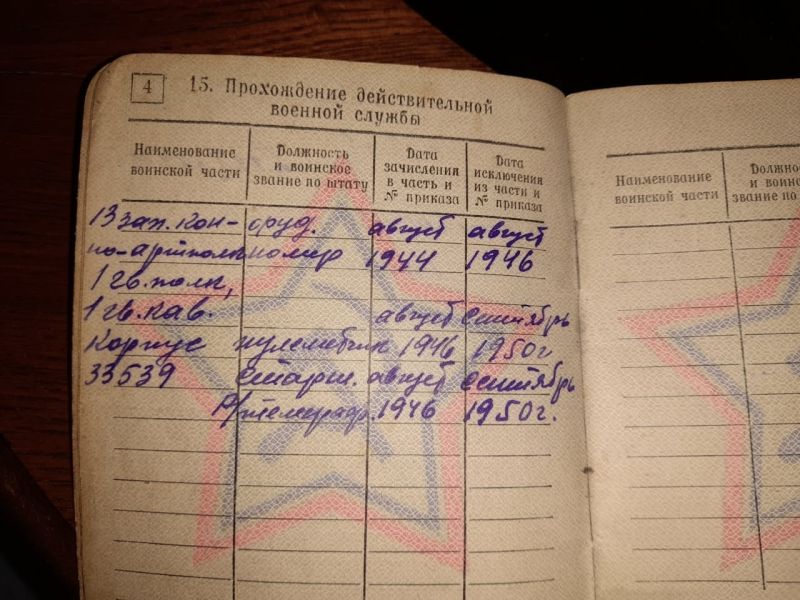 4
15. Прохождение действительной
военной службы
Наименование воинской части
Должность и воинское звание по штату
Дата зачисления в часть и № приказа
Дата исключения из части и № приказа
13 зап. кон- оруд. август август
но-артполк номер 1944 1946
1 гв. полк,
1 гв. кав. август сентябрь
корпус пулемётчик 1946 1950г
33539 старш. август сентябрь
р/телеграф. 1946 1950г.
Наименование воинской части
Должно
и воин
звание по